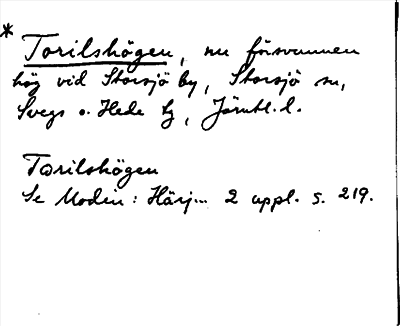 * Torilshögen, nu försvunnen
hög vid Storsjö by, Storsjö sn,
Svegs o. Hede tg, Jämtl. l.
Torilshögen
Se Modin: Härj... 2 uppl. s. 219.